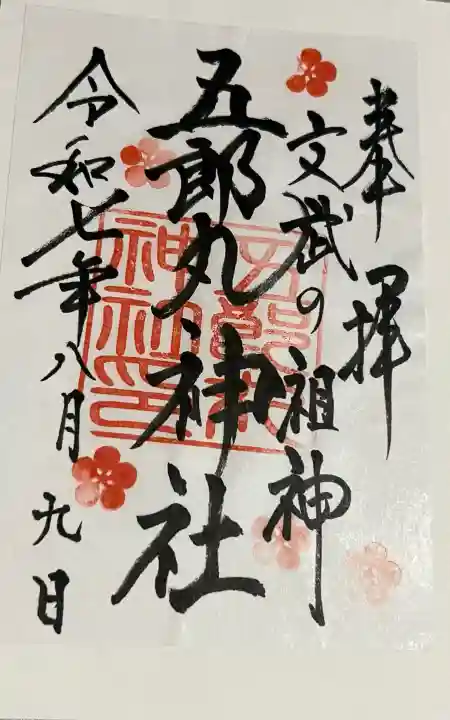 奉拝
文武の祖神
五郎丸神社
五郎丸神社印
令和七年八月九日